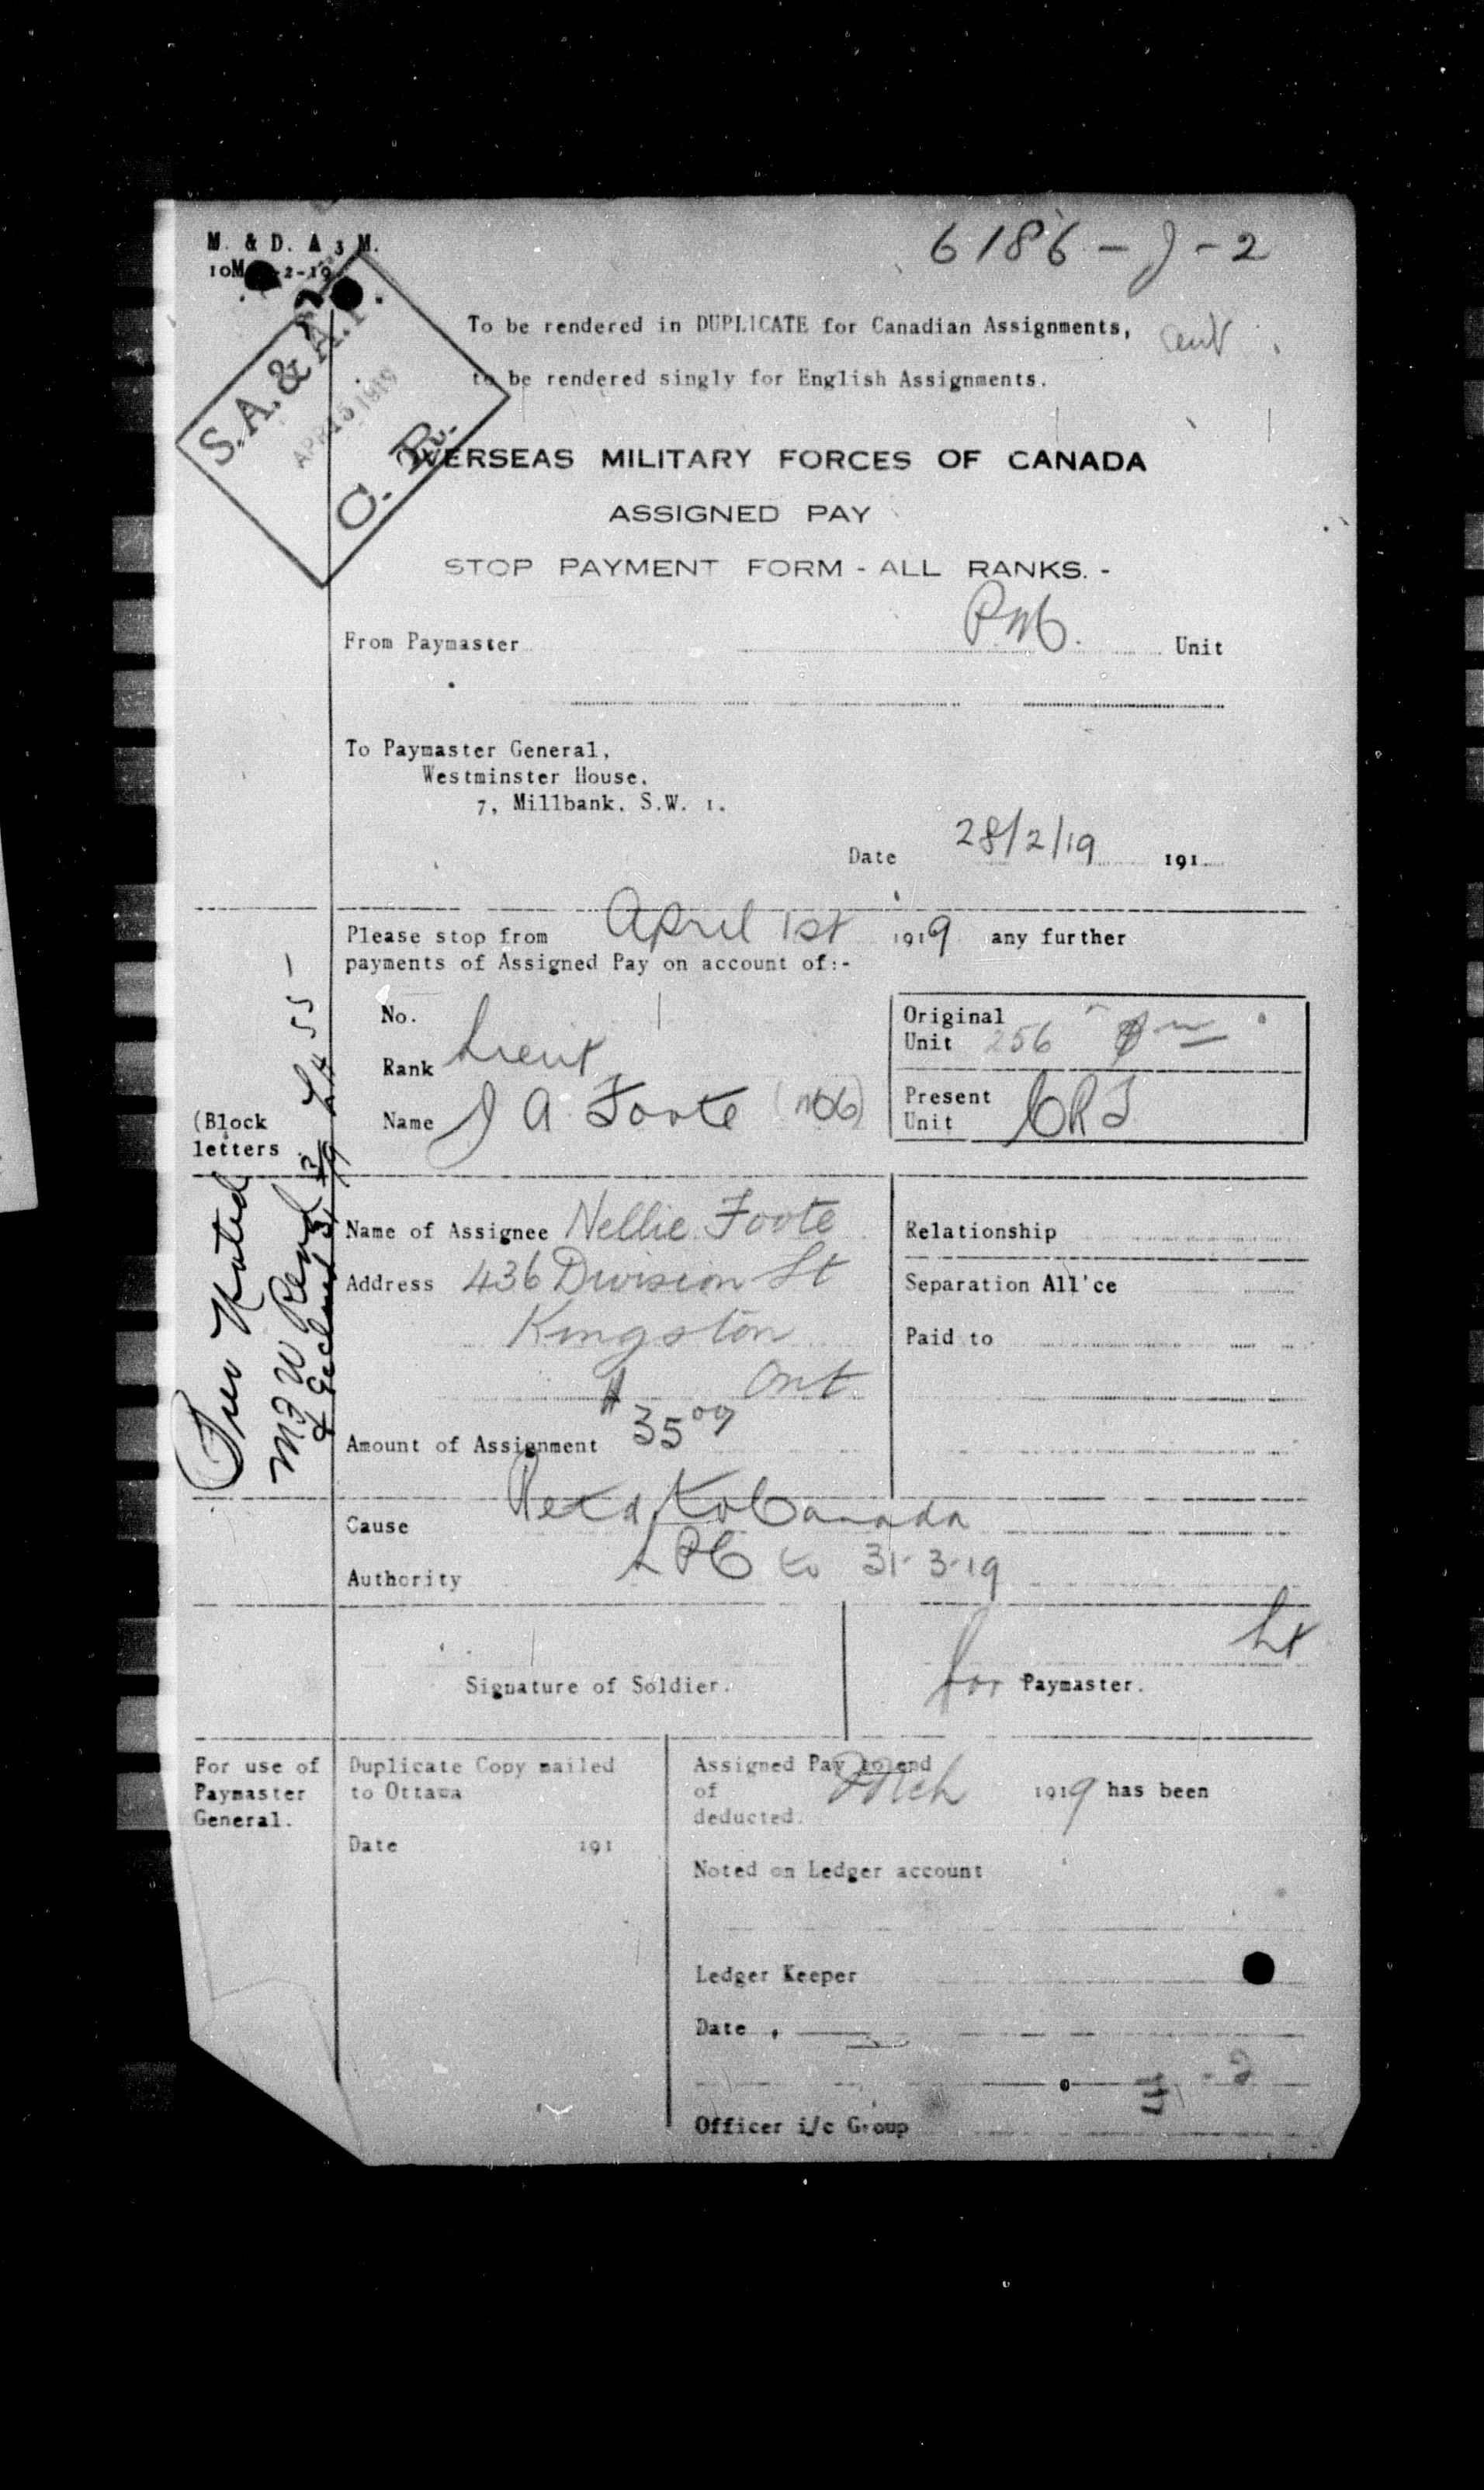 M. & D. A 3 M.
6186 - J - 2
10M -2-19
To be rendered in DUPLICATE for Canadian Assignments,
to be rendered singly for English Assignments.
S.A. & A.P.
APR 15 1919
C. R.
OVERSEAS MILITARY FORCES OF CANADA
ASSIGNED PAY
STOP PAYMENT FORM - ALL RANKS. -
From Paymaster Unit
To Paymaster General,
Westminster House,
7, Millbank, S.W. 1.
Date 28/2/19 191
Please stop from April 1st 1919 any further
payments of Assigned Pay on account of:-
No.
Rank Lieut
(Block letters
Name J A Foote
Original Unit 256
Present Unit CRT
Name of Assignee Nellie Foote
Address 436 Division St
Kingston
Ont
Amount of Assignment $ 35 00
Relationship
Separation All'ce
Paid to
Cause Retd to Canada
Authority LPC to 31-3-19
Signature of Soldier.
Lt
for Paymaster.
For use of
Paymaster
General.
Duplicate Copy mailed
to Ottawa
Date 191
Assigned Pay to end
of Mch 1919 has been
deducted.
Noted on Ledger account
Ledger Keeper
Date
Officer i/c Group